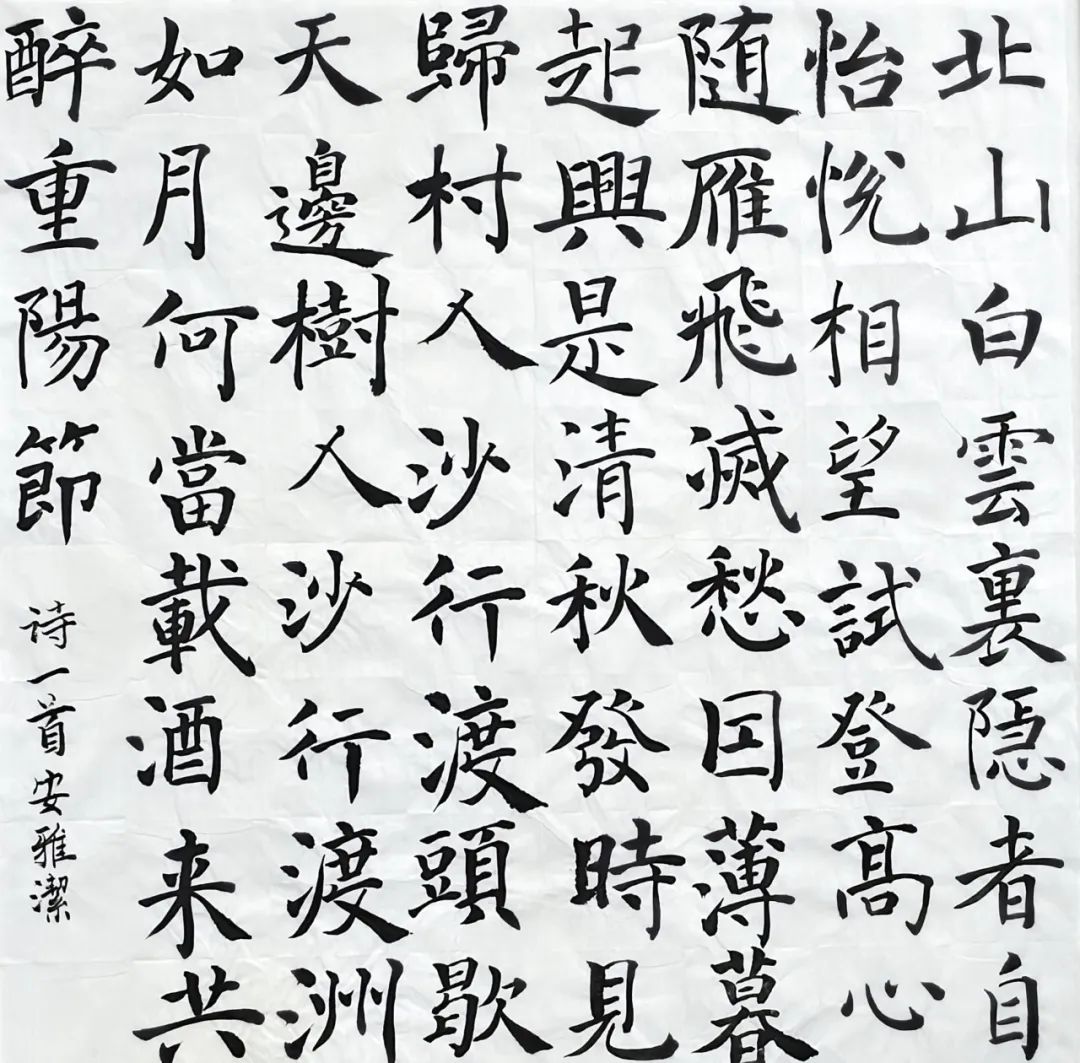 北山白雲裏隐者自
怡悅相望試登高心
随雁飛滅愁因薄暮
起興是清秋發時見
歸村人沙行渡頭歇
天邊樹人沙行渡洲
如月何當載酒来共
醉重陽節
诗一首安雅潔